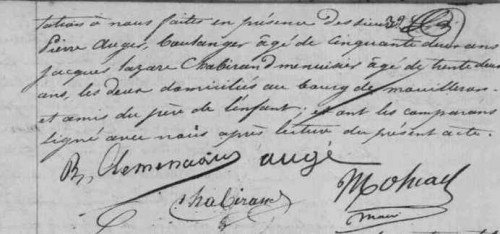 tation à nous faites en présence des sieurs
Pierre Auger, boulanger âgé de cinquante deux ans
Jacques Lazare Chabirand menuisier âgé de trente deux
ans, les deux domiciliés au bourg de Mouilleron
et amis du père de l'enfant. et ont les comparans
signé avec nous après lecture du présent acte.
augé
Chabirand